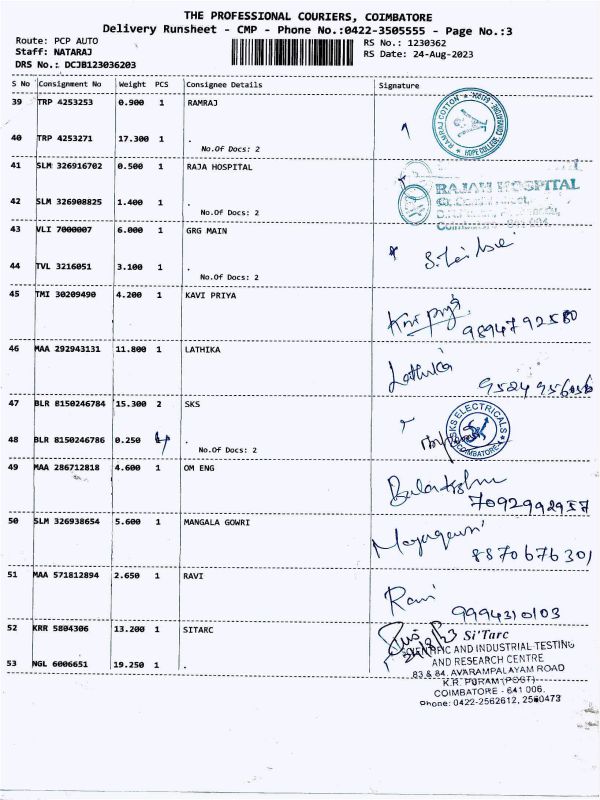 THE PROFESSIONAL COURIERS, COIMBATORE
Delivery Runsheet - CMP - Phone No.:0422-3505555 - Page No.:3
Route: PCP AUTO
Staff: NATARAJ
DRS No.: DCJB123036203
RS No.: 1230362
RS Date: 24-Aug-2023
S No Consignment No Weight PCS Consignee Details Signature
39 TRP 4253253 0.900 1 RAMRAJ
RAMRAJ COTTON
HOPE COLLEGE, COIMBATORE
40 TRP 4253271 17.300 1 .
No.Of Docs: 2
41 SLM 326916702 0.500 1 RAJA HOSPITAL
RAJAH HOSPITAL
42 SLM 326908825 1.400 1 .
No.Of Docs: 2
43 VLI 7000007 6.000 1 GRG MAIN
44 TVL 3216051 3.100 1 .
No.Of Docs: 2
45 TMI 30209490 4.200 1 KAVI PRIYA
9894792580
46 MAA 292943131 11.800 1 LATHIKA
Lathika
9524956056
47 BLR 8150246784 15.300 2 SKS
SKS ELECTRICALS
COIMBATORE
48 BLR 8150246786 0.250 1 .
No.Of Docs: 2
49 MAA 286712818 4.600 1 OM ENG
7092992957
50 SLM 326938654 5.600 1 MANGALA GOWRI
8870676301
51 MAA 571812894 2.650 1 RAVI
Ravi
9994310103
52 KRR 5804306 13.200 1 SITARC
Si'Tarc
SCIENTIFIC AND INDUSTRIAL TESTING
AND RESEARCH CENTRE
53 NGL 6006651 19.250 1 .
83 & 84, AVARAMPALAYAM ROAD
K.R. PURAM (POST)
COIMBATORE - 641 006.
Phone: 0422-2562612, 2560473